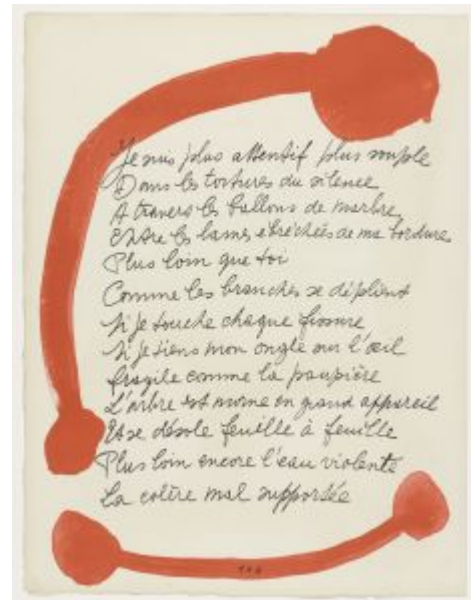 Je suis plus attentif plus souple
Dans les tortures du silence
A travers les ballons de marbre
Entre les lames ébréchées de ma bordure
Plus loin que toi
Comme les branches se déplient
Si je touche chaque fissure
Si je tiens mon ongle sur l'œil
fragile comme la paupière
L'arbre est morne en grand appareil
Et se désole feuille à feuille
Plus loin encore l'eau violente
La colère mal supportée